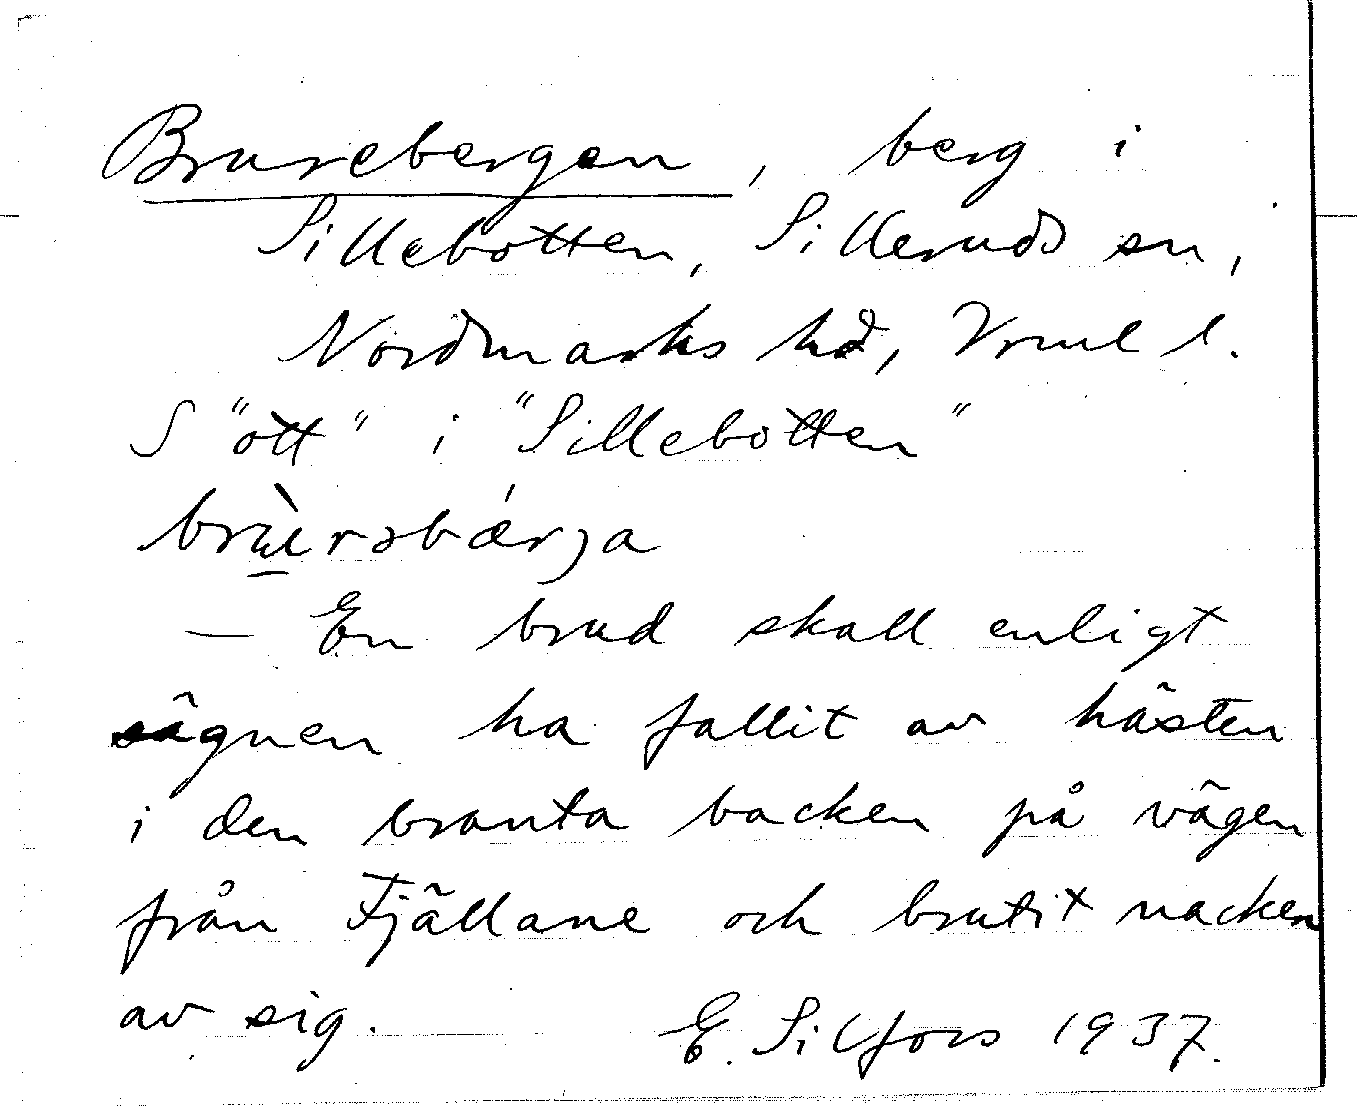 Brurebergen, berg i
Sillebotten, Silleruds sn,
Nordmarks hd, Vrml l.
S "ött" i "Sillebotten"
En brud skall enligt
sägnen ha fallit av hästen
i den branta backen på vägen
från Fjällane och brutit nacken
av sig. E. Silfors 1937.